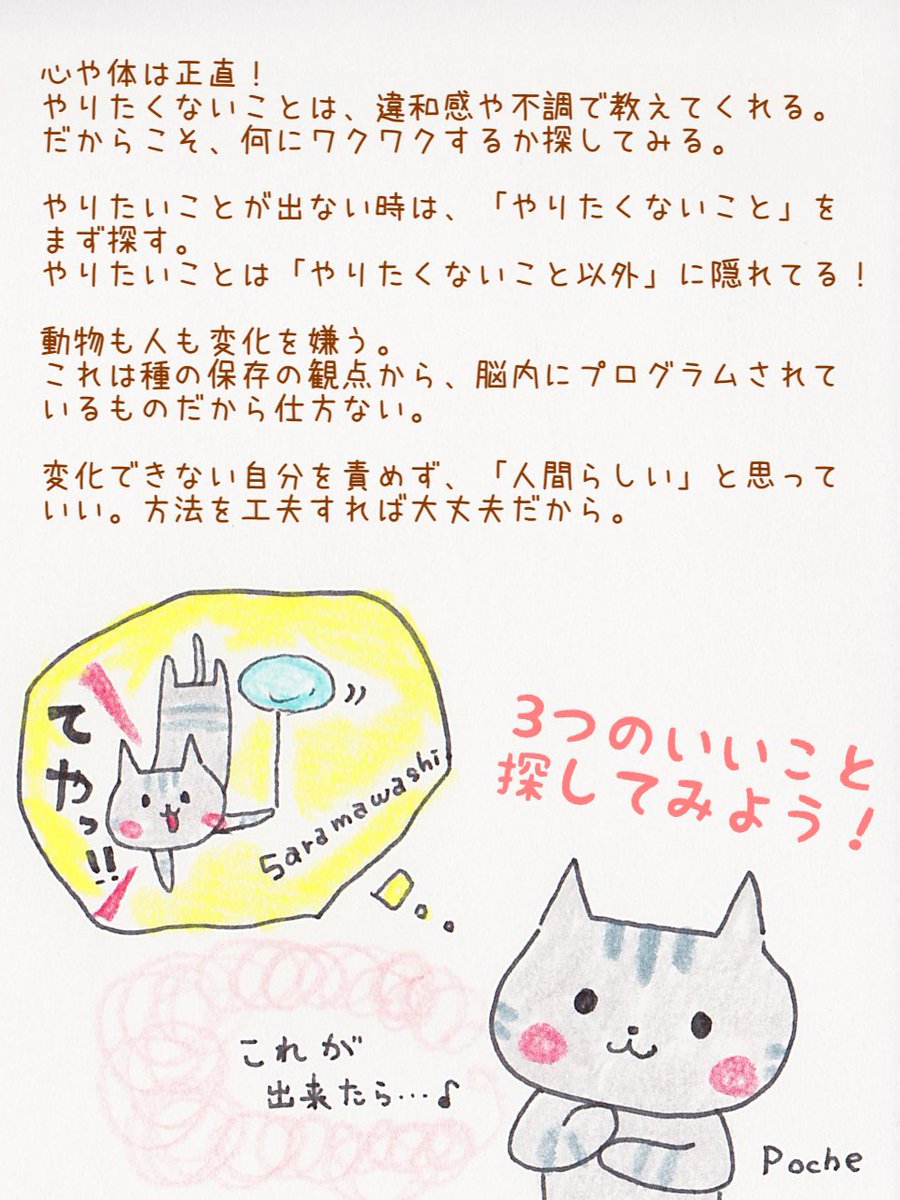 心や体は正直！
やりたくないことは、違和感や不調で教えてくれる。
だからこそ、何にワクワクするか探してみる。
やりたいことが出ない時は、「やりたくないこと」を
まず探す。
やりたいことは「やりたくないこと以外」に隠れてる！
動物も人も変化を嫌う。
これは種の保存の観点から、脳内にプログラムされて
いるものだから仕方ない。
変化できない自分を責めず、「人間らしい」と思って
いい。方法を工夫すれば大丈夫だから。
てやっ!!
Saramawashi
3つのいいこと
探してみよう！
これが
出来たら…♪
Poche